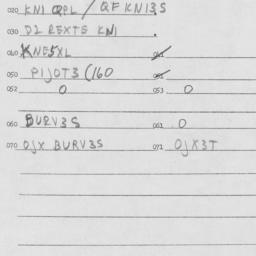 020 KN1 QRPL / QF KN13S
030 D2 REXTS KN1 .
040 KNE5XL 041
050 P1JOT3 (160 051
052 0 053 0
060 BURV3S 061 0
070 OJX BURV3S 071 OJX3T